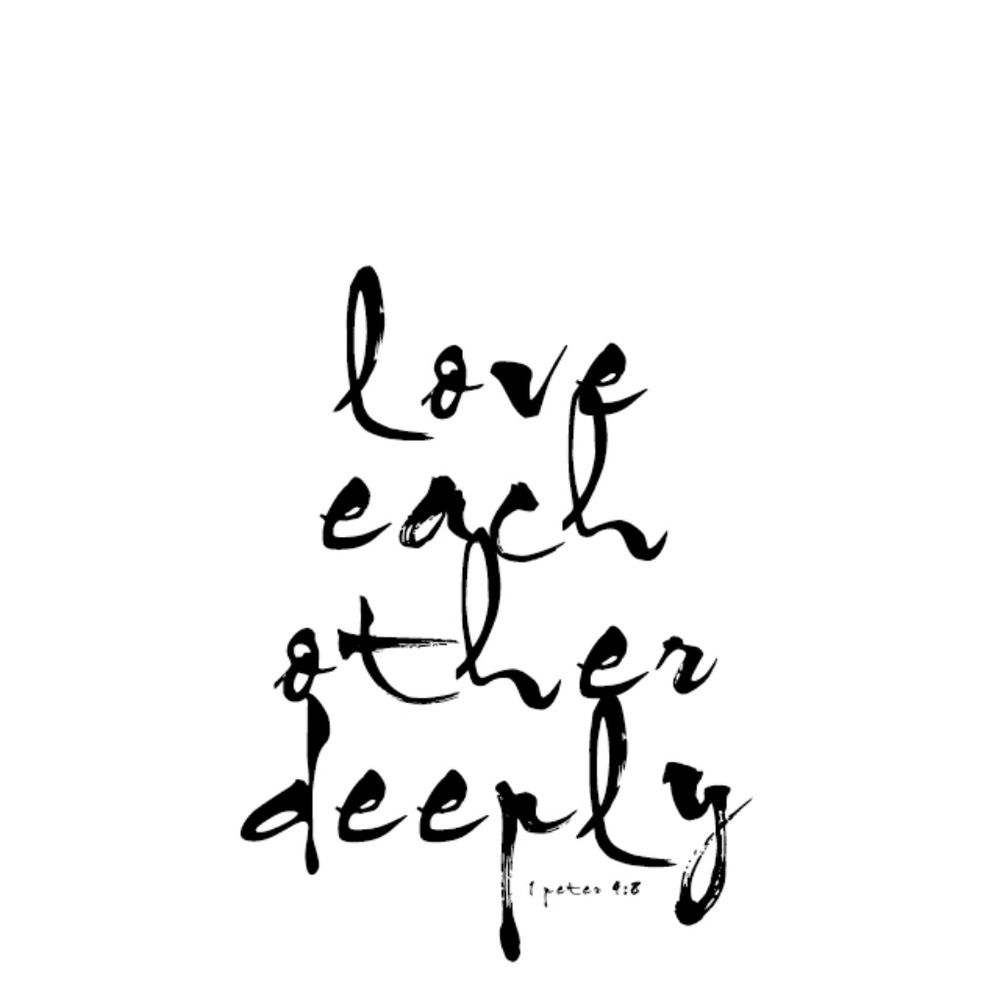 love
each
other
deeply
1 peter 4:8